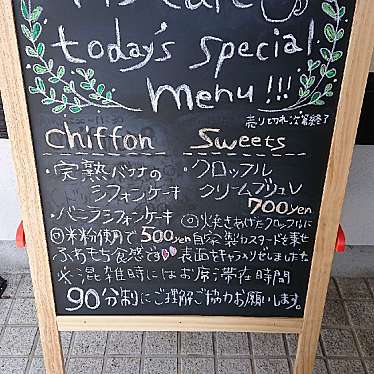 Cafe
today's special
menu!!!
売り切れ次第終了
chiffon
・完熟バナナの
シフォンケーキ
・バニラシフォンケーキ
◎米粉使用で 500yen
ふわもち食感です
Sweets
・クロッフル
クリームブリュレ
700yen
◎焼きあげたクロッフルに
自家製カスタードを乗せ
表面をキャラメリゼしました
※混雑時にはお席滞在時間
90分制にご理解ご協力お願いします。